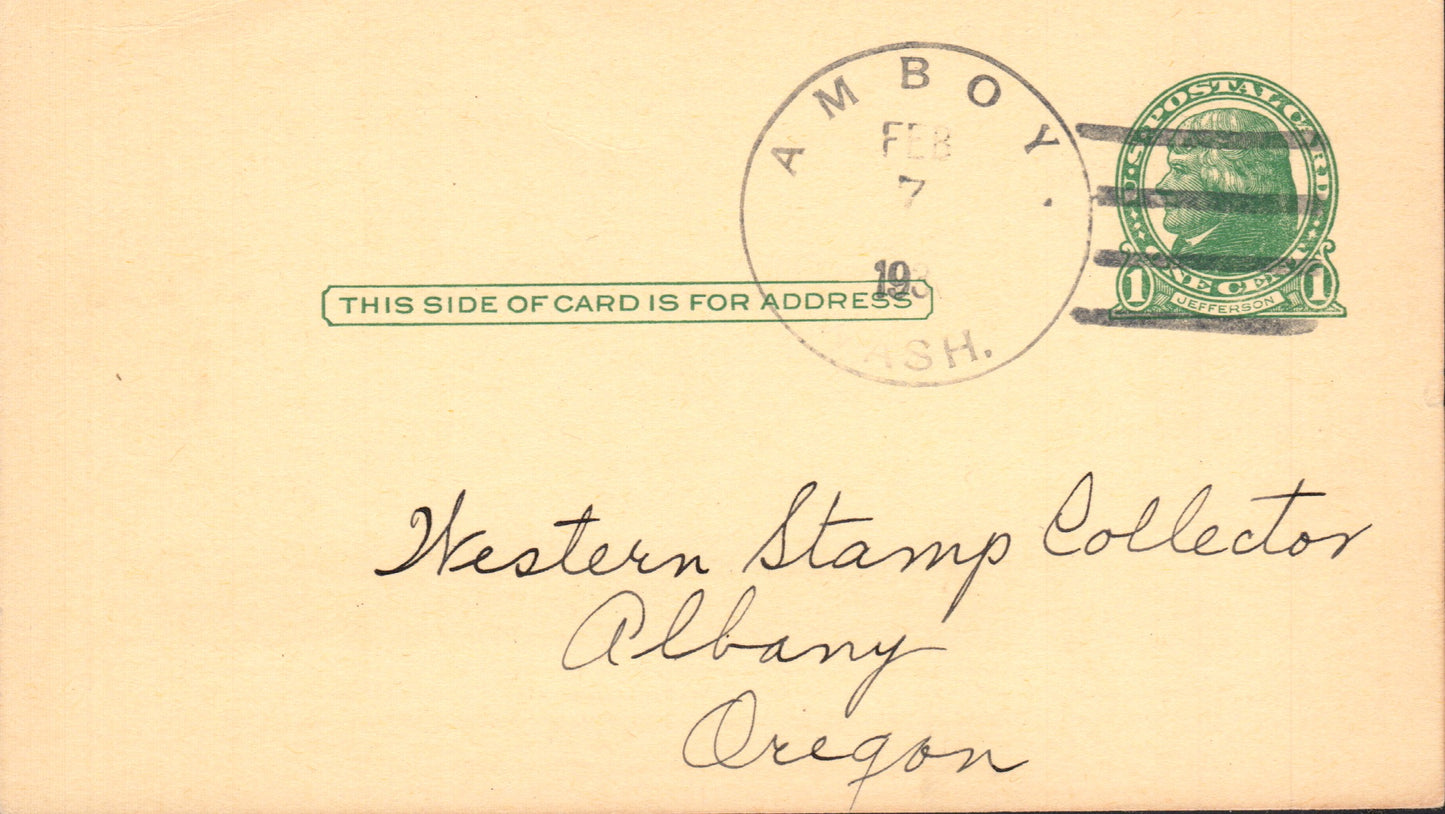 AMBOY.
FEB
7
193
WASH.
U·S·POSTAL CARD
ONE CENT
1 JEFFERSON 1
THIS SIDE OF CARD IS FOR ADDRESS
Western Stamp Collector
Albany
Oregon